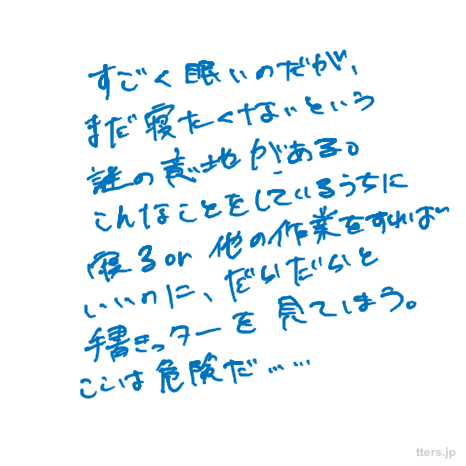 すごく眠いのだが、
まだ寝たくないという
謎の意地がある。
こんなことをしているうちに
寝るor 他の作業をすれば
いいのに、だらだらと
手書きッターを見てしまう。
ここは危険だ……
tters.jp